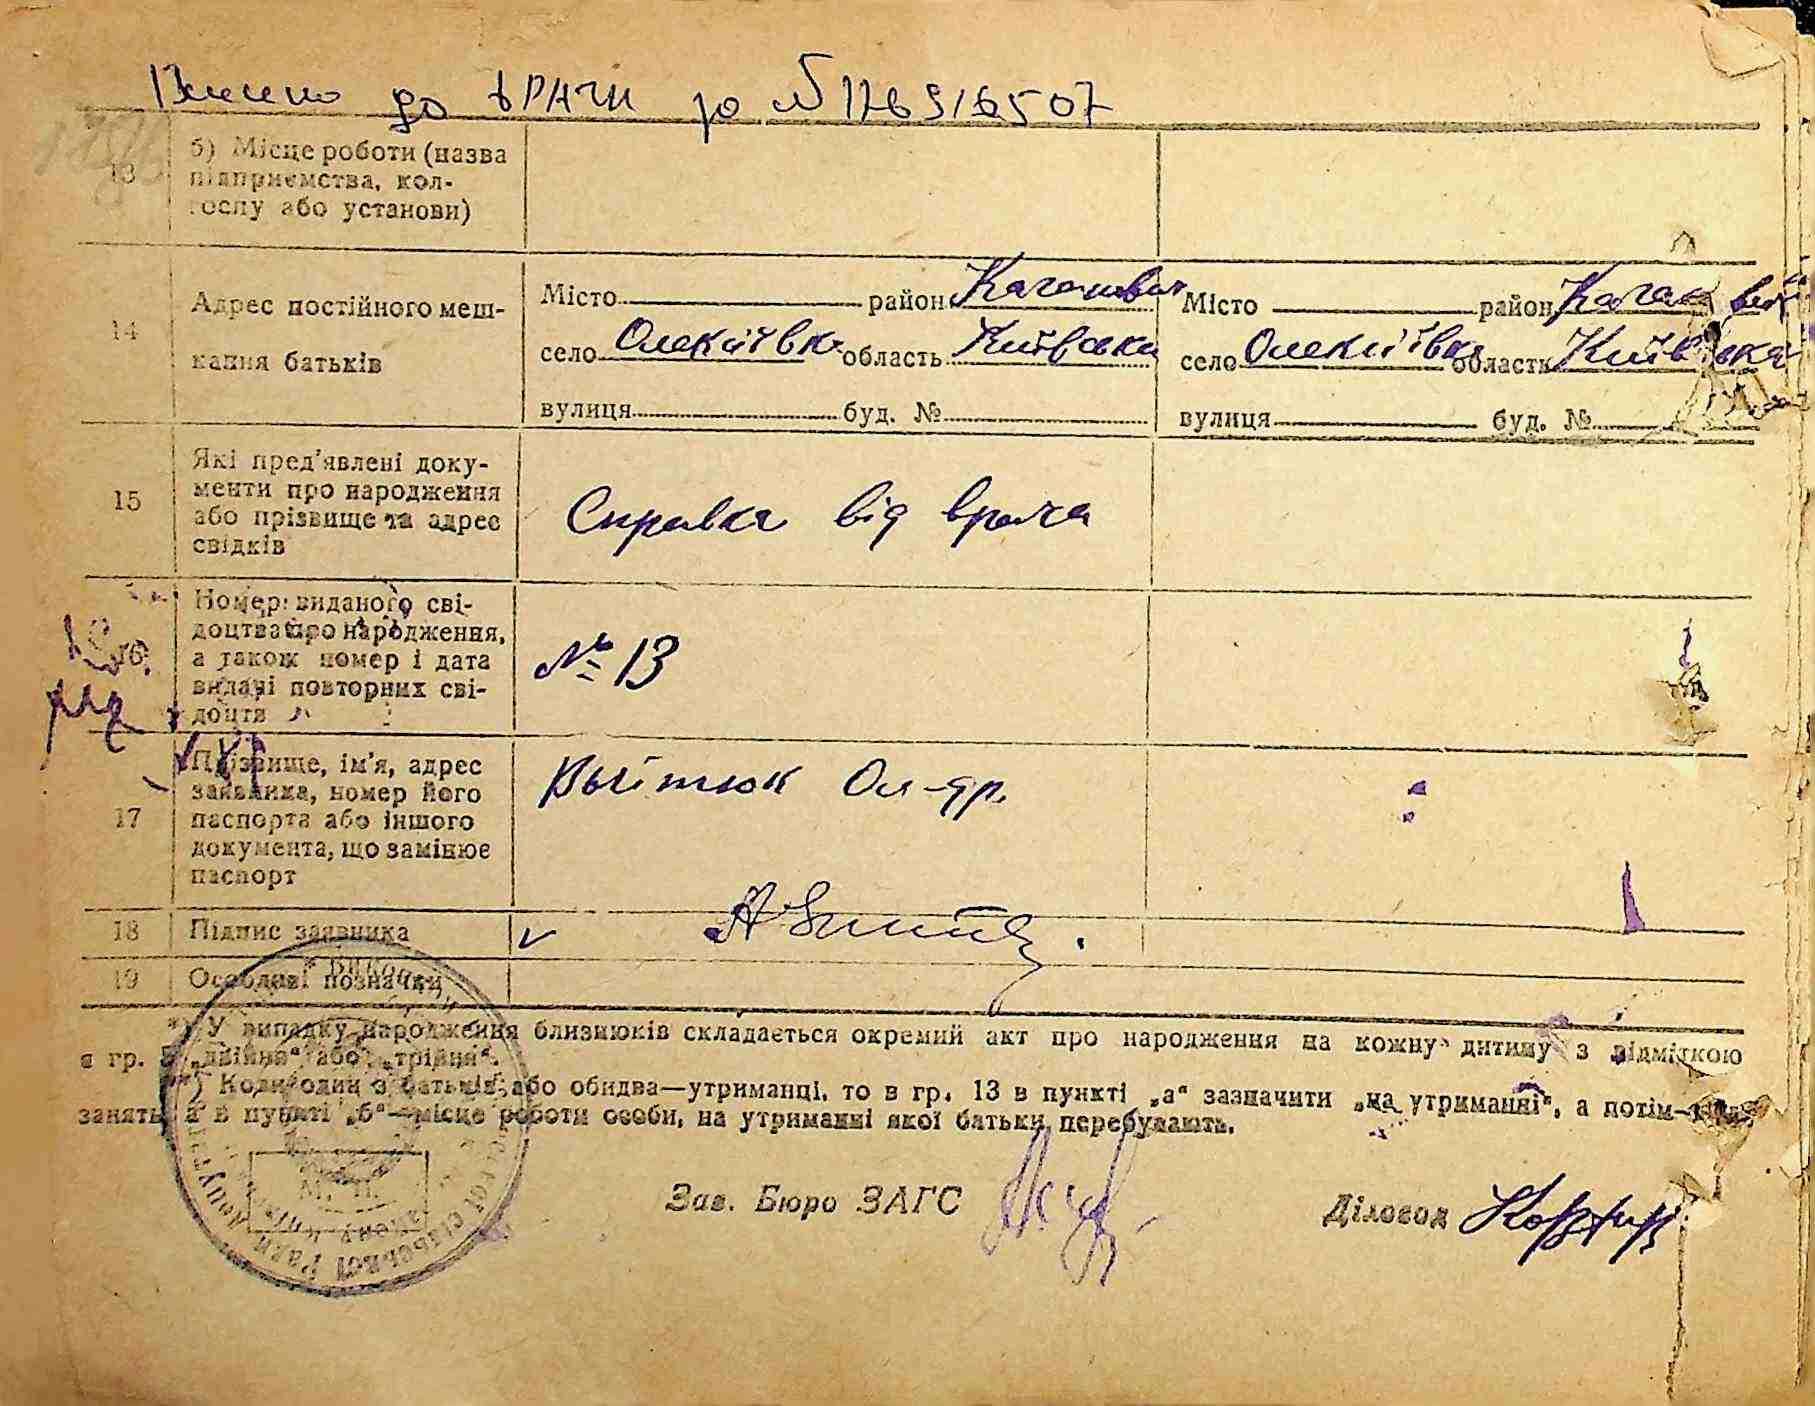 до ДРАЧИ за №
13 б) Місце роботи (назва
підприємства, кол-
госпу або установи)
14 Адрес постійного меш-
кання батьків
Місто район Кагановичі
село Олексіївка область Київська
вулиця буд. №
Місто район
село Олексіївка область Київська
вулиця буд. №
15 Які пред'явлені доку-
менти про народження
або прізвище та адрес
свідків
Справка від врача
16 Номер виданого сві-
доцтва про народження,
а також номер і дата
видачі повторних сві-
доцтв
№ 13
17 Прізвище, ім'я, адрес
заявника, номер його
паспорта або іншого
документа, що замінює
паспорт
18 Підпис заявника
19 Особливі позначки
*) У випадку народження близнюків складається окремий акт про народження на кожну дитину з відміткою
в гр. 5 „двійня“ або „трійня“.
**) Коли один з батьків або обидва—утриманці, то в гр. 13 в пункті „а“ зазначити „на утриманні“, а потім—
занять, а в пункті „б“—місце роботи особи, на утриманні якої батьки перебувають.
М. П.
Зав. Бюро ЗАГС Діловод